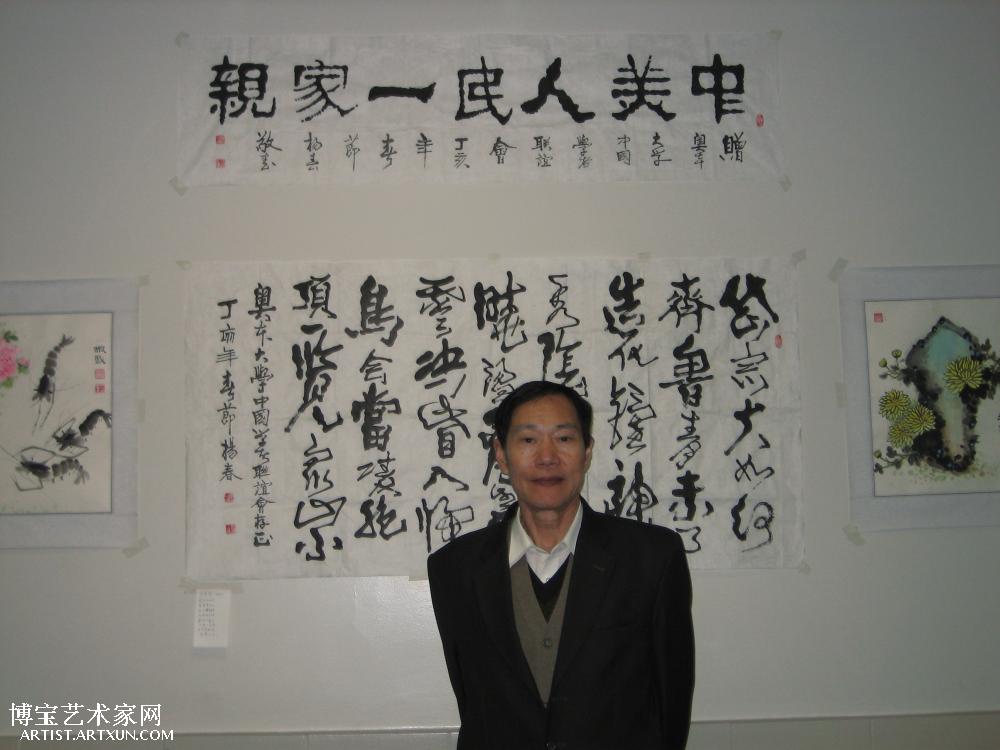 中美人民一家親
贈奧本大學中國學者聯誼會丁亥年春節楊春敬書
岱宗夫如何
齊魯青未了
造化鍾神
秀陰
曉盪
雲決眥入歸
鳥會當凌絕
頂一覽衆山小
奧本大學中國學者聯誼會存正
丁亥年春節楊春
博宝艺术家网
ARTIST.ARTXUN.COM